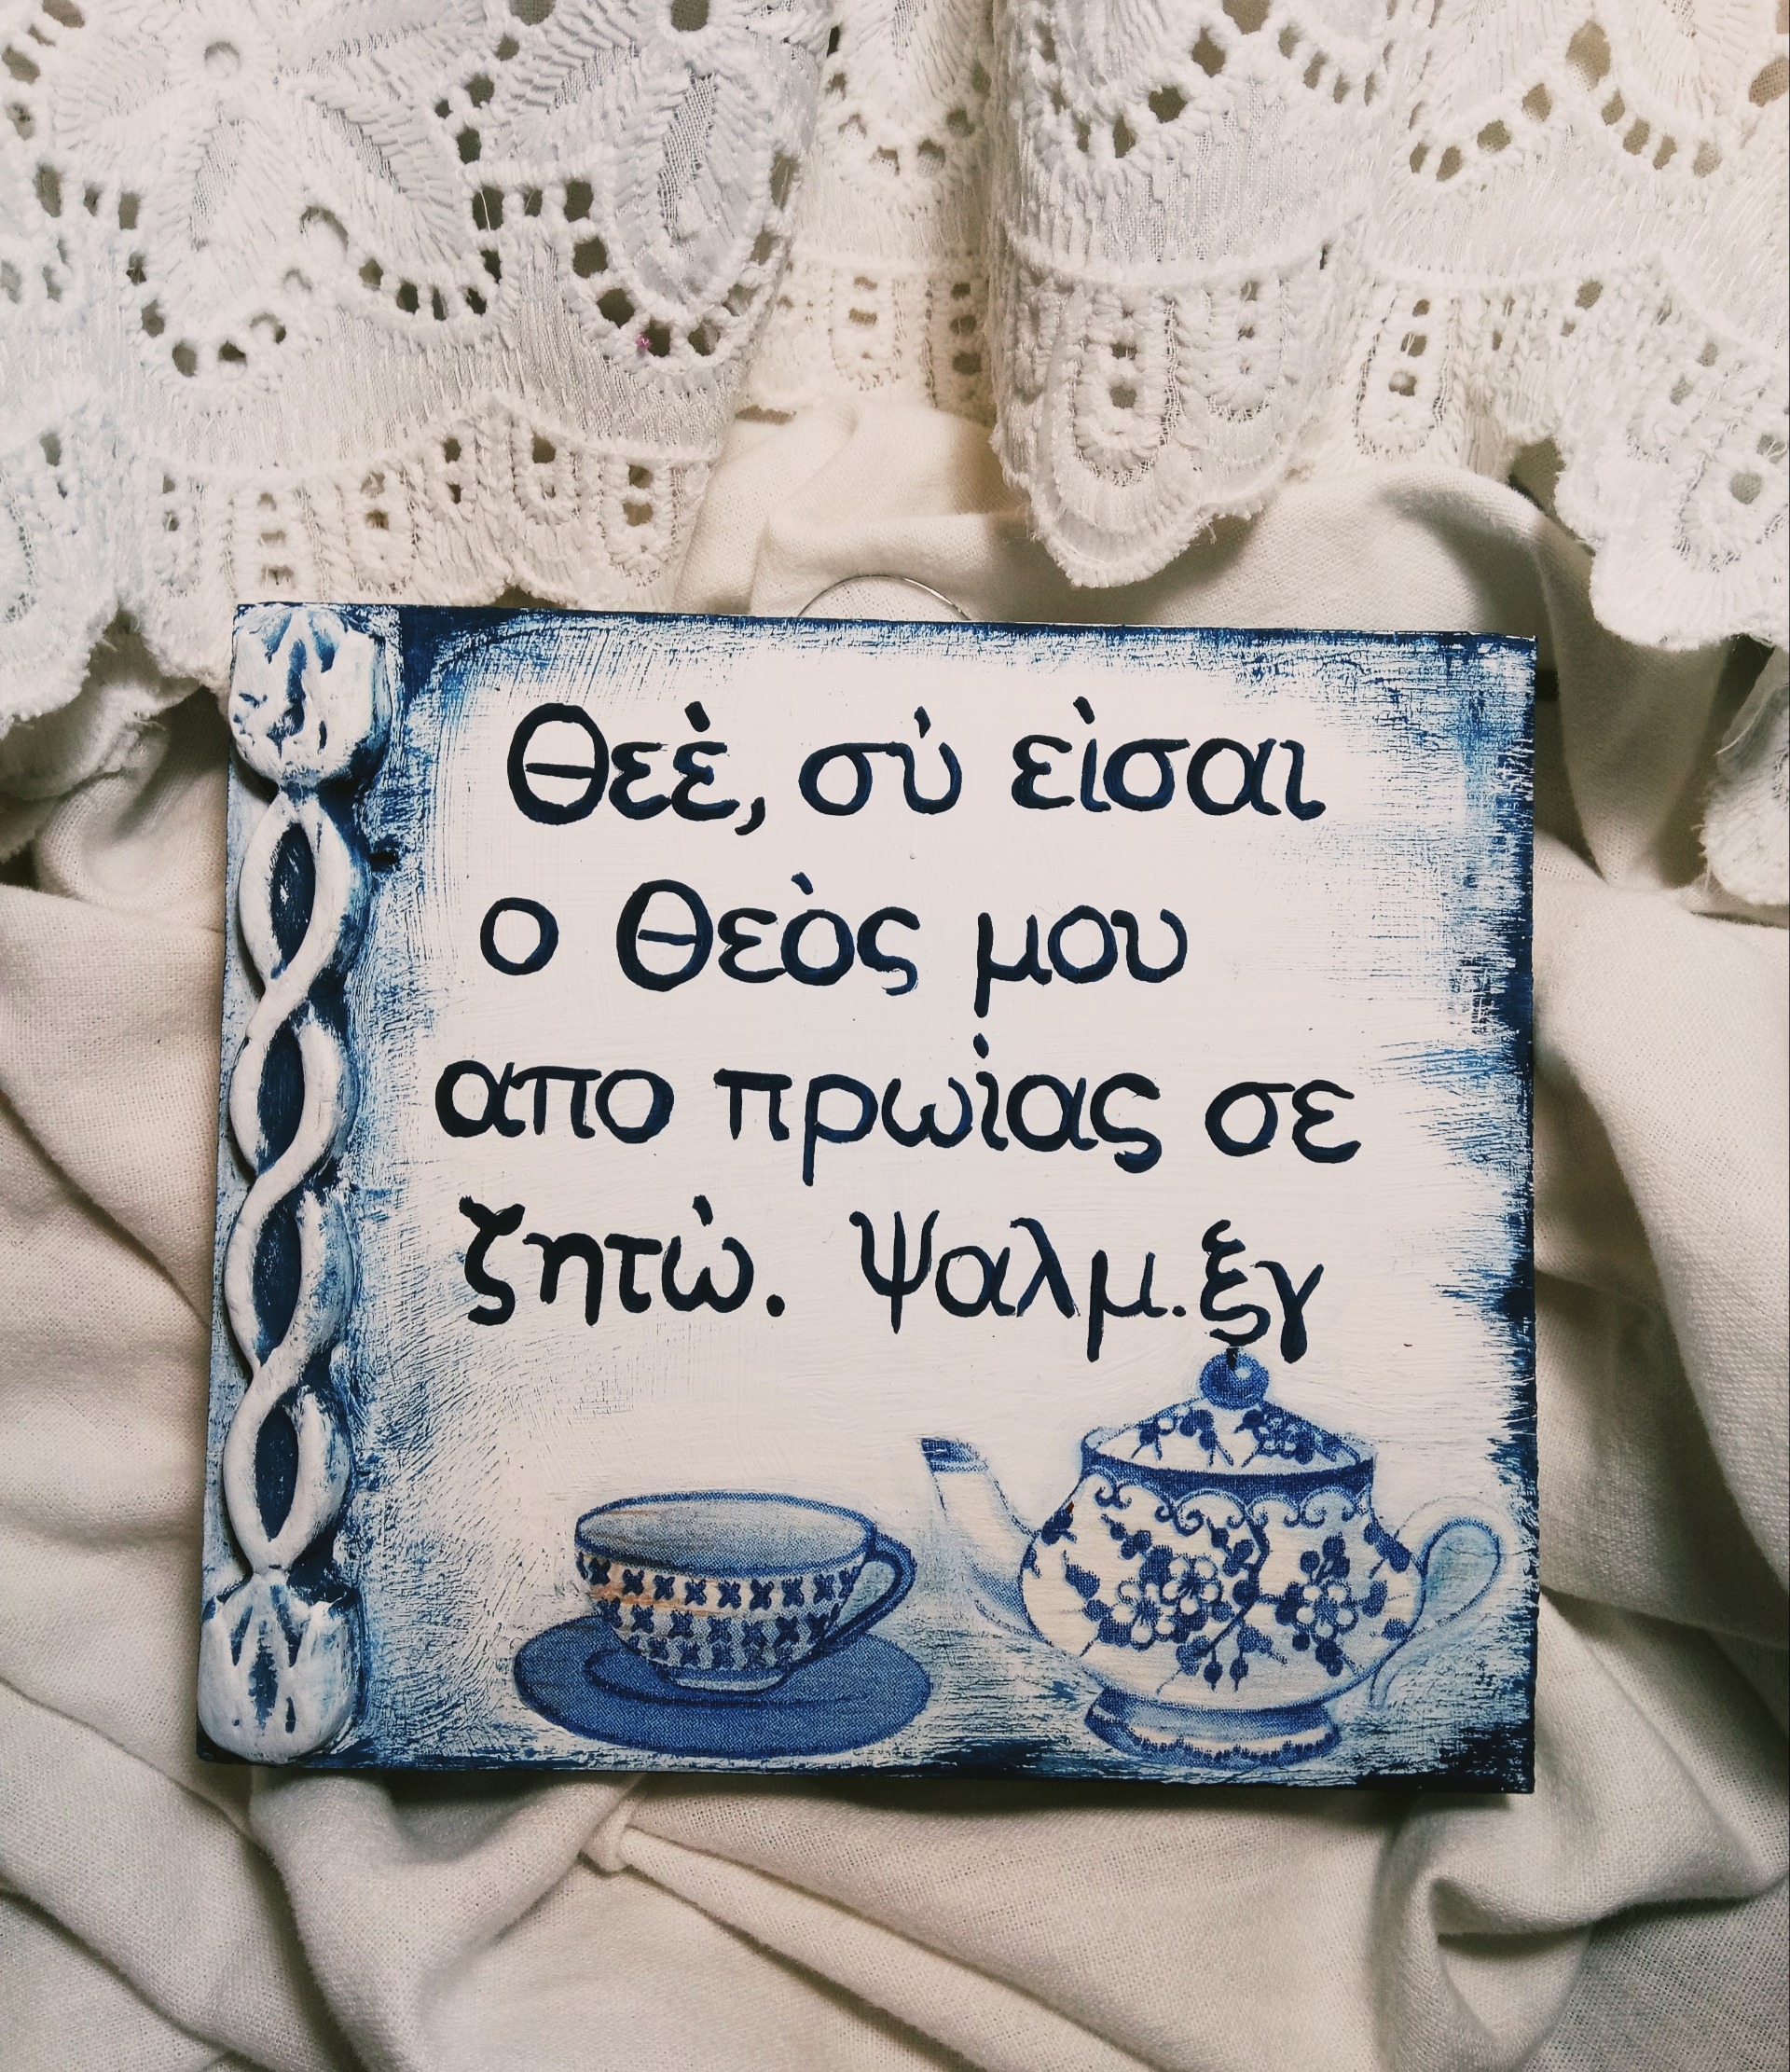 Θεὲ, σὺ εἶσαι
ο Θεὸς μου
απο πρωίας σε
ζητὼ. Ψαλμ.ξγ